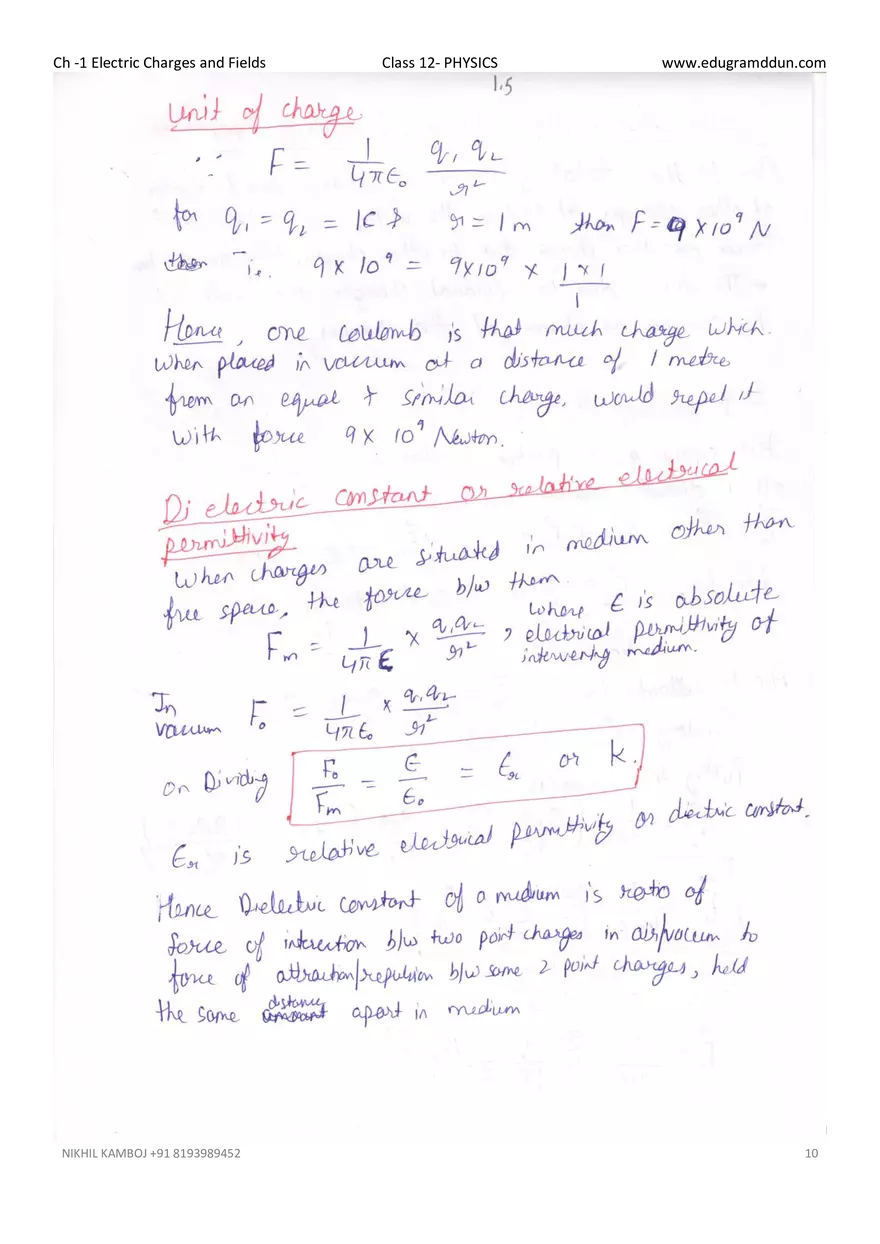 Ch -1 Electric Charges and Fields Class 12- PHYSICS www.edugramddun.com
1.5
Unit of charge
∵ F = 1/4πε₀ q₁ q₂/r²
for q₁ = q₂ = 1C & r = 1 m then F = 9 × 10⁹ N
i.e. 9 × 10⁹ = 9×10⁹ × 1×1/1
Hence, one coulomb is that much charge which.
When placed in vacuum at a distance of 1 metre
from an equal & similar charge, would repel it
with force 9 × 10⁹ Newton.
Di electric constant or relative electrical
permittivity
When charges are situated in medium other than
free space, the force b/w them
Fm = 1/4πε × q₁q₂/r² , where ε is absolute
electrical permittivity of
intervening medium.
In vacuum F₀ = 1/4πε₀ × q₁q₂/r²
on Dividing F₀/Fm = ε/ε₀ = εr or k.
εr is relative electrical permittivity or diectric constant.
Hence Dielectric constant of a medium is ratio of
force of interection b/w two point charges in air/vacuum to
force of attraction/repulsion b/w same 2 point charges, held
the same distance apart in medium
NIKHIL KAMBOJ +91 8193989452 10